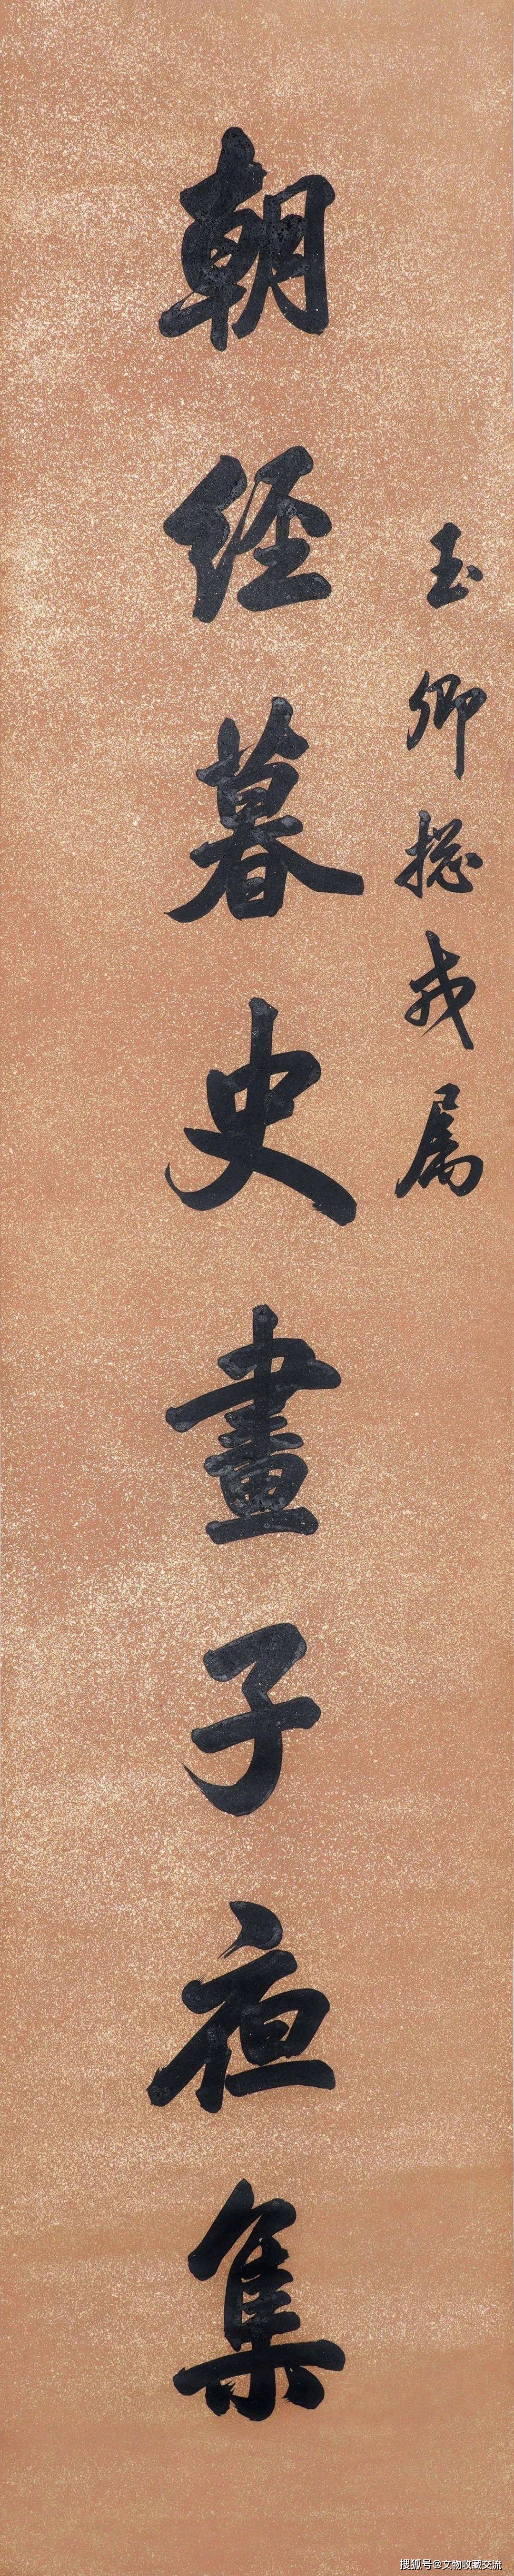 玉卿捴戎属
朝经暮史晝子夜集
搜狐号@文物收藏交流